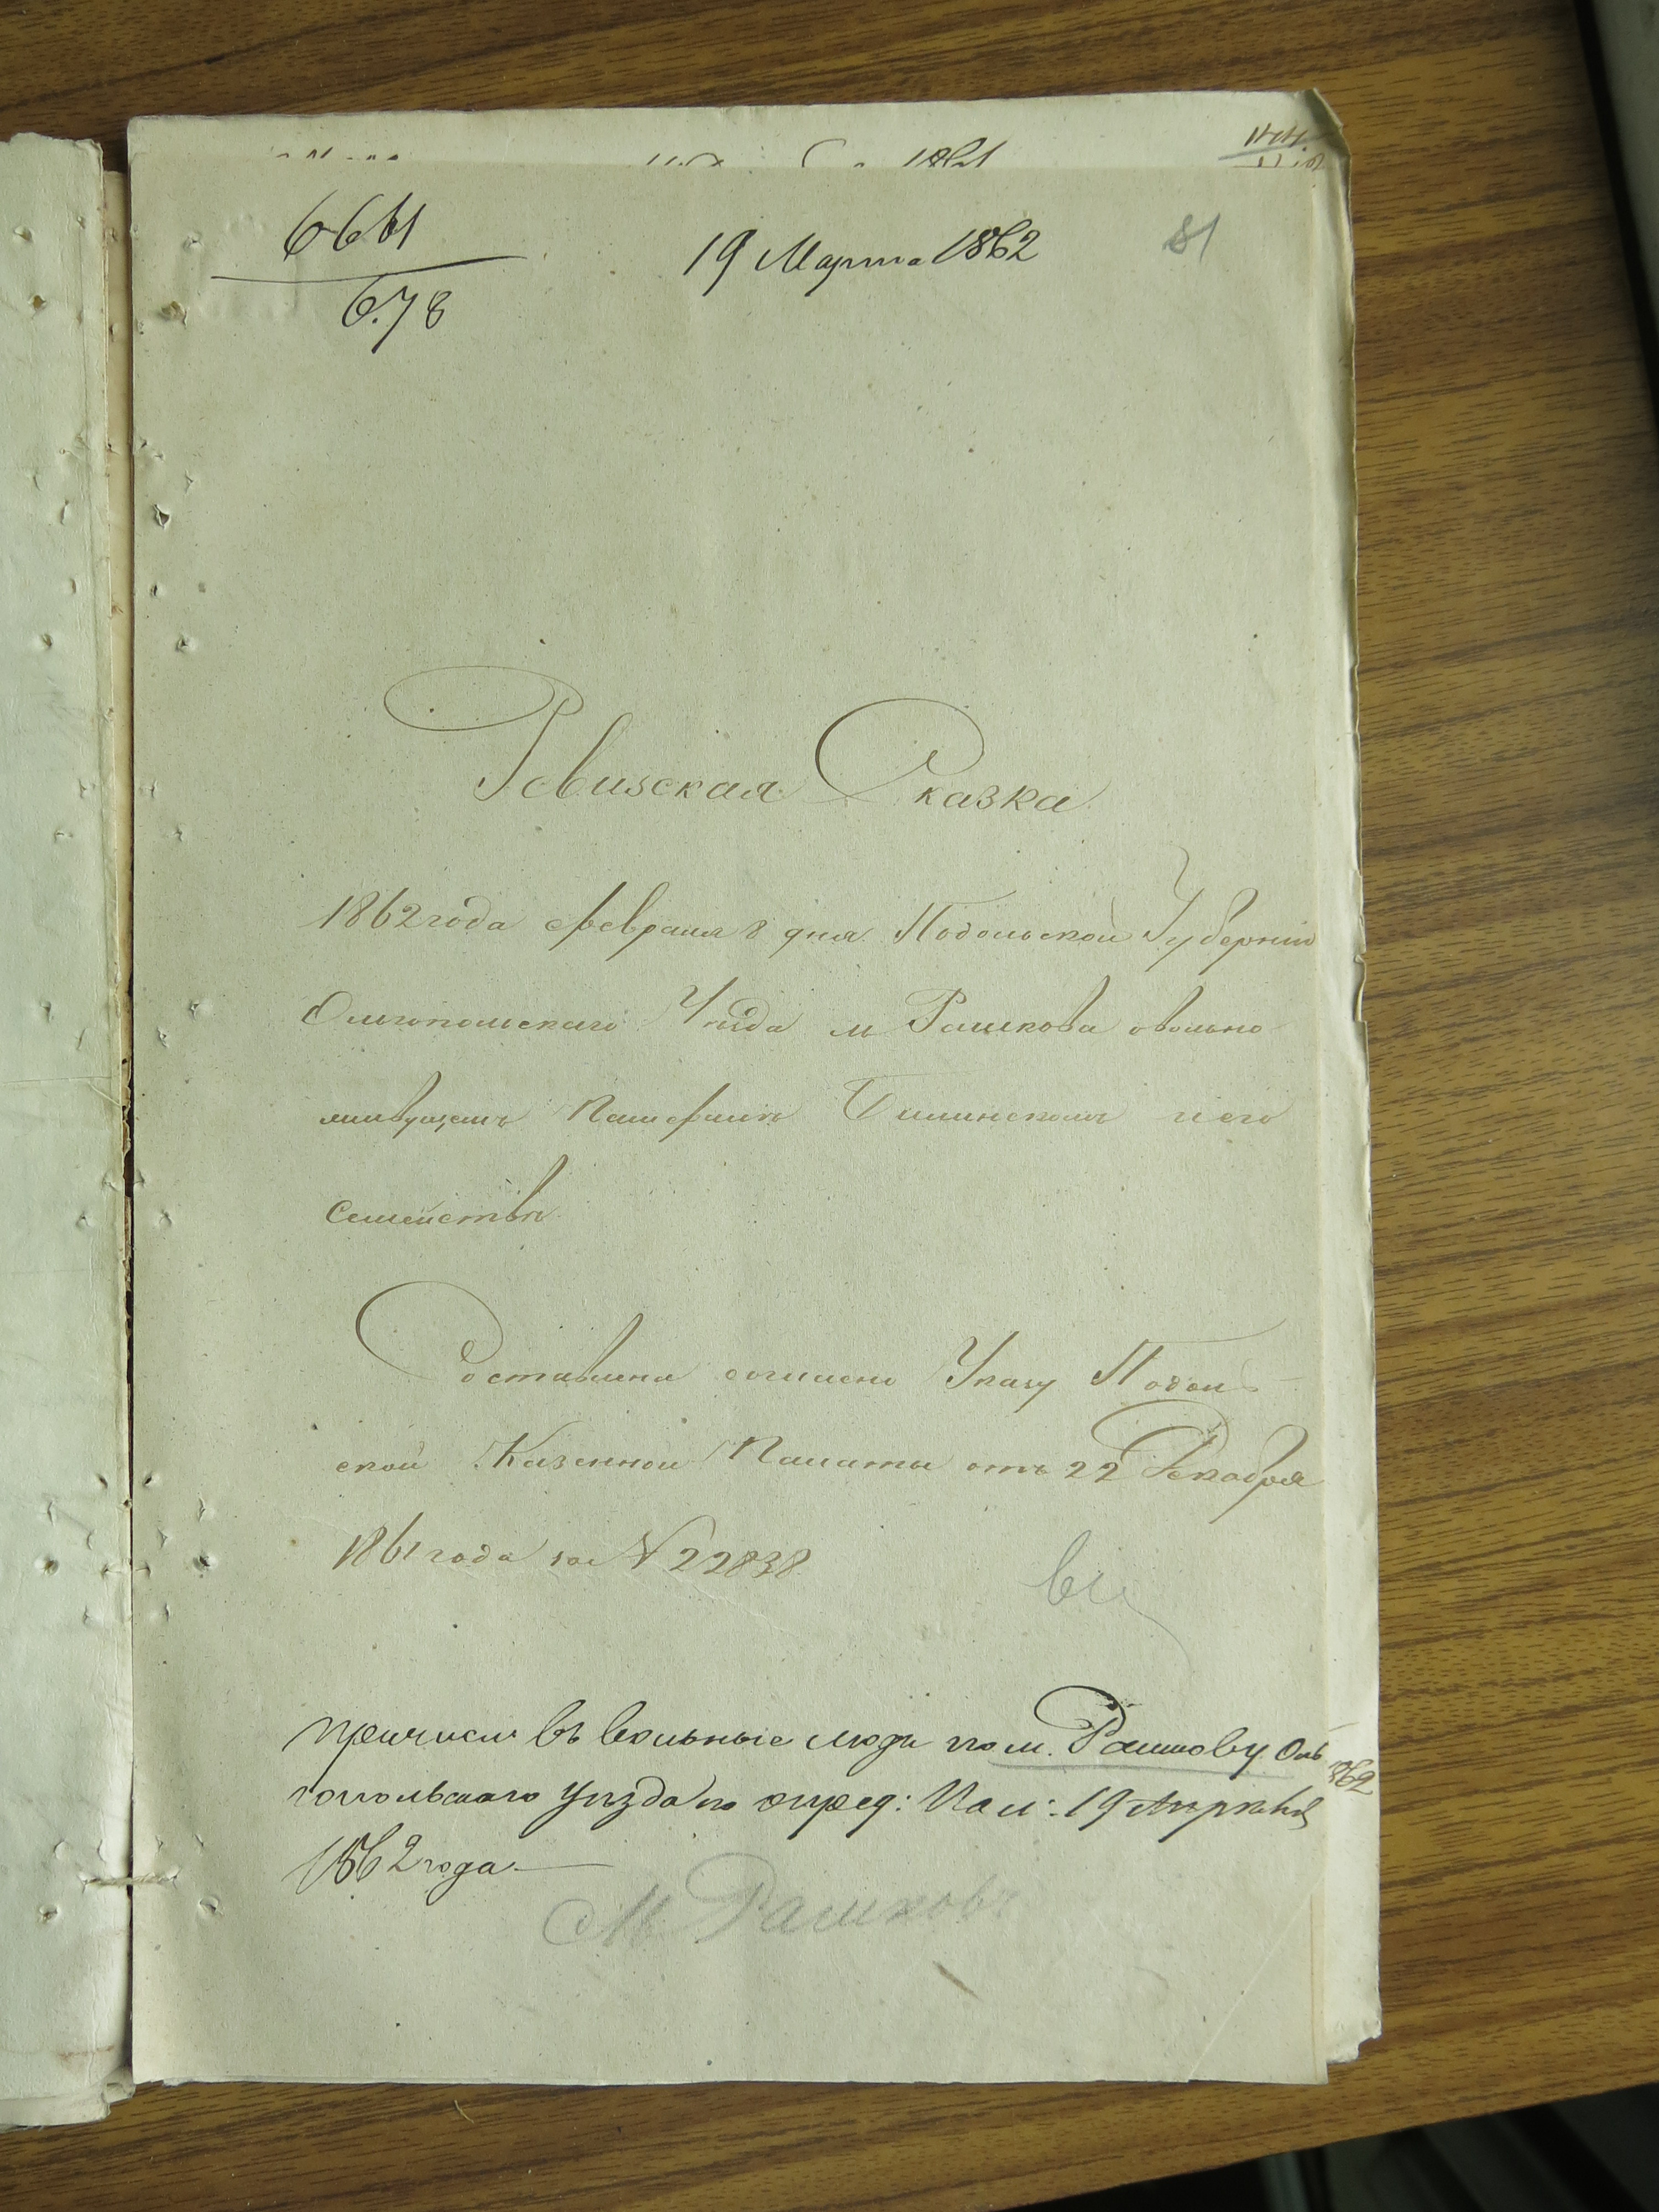 1861
6661
678
19 Марта 1862
81
Ревизская Сказка
1862 года февраля 8 дня Подольской Губерніи
Ольгопольскаго Уѣзда м Рашкова овольно
живущемъ Билинскомъ иего
Семействѣ
Составлена согласно Указу Подоль
ской Казенной Палаты отъ 22 Декабря
1861 года за № 22838
Причисл въ вольные люди по м. Рашкову Оль
гопольскаго уѣзда по опред: Пал: 19 Апрѣля
1862 года
М Рашковъ